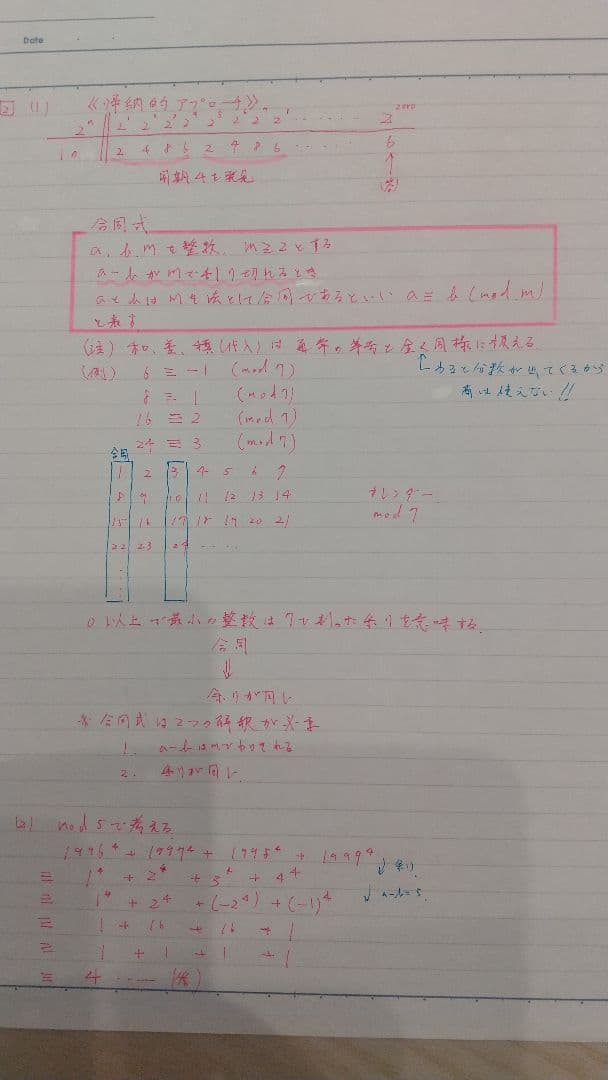 Date
2 (1) 《帰納的アプローチ》
2ⁿ 2¹ 2² 2³ 2⁴ 2⁵ 2⁶ 2⁷ 2⁸ ······
2 4 8 6 2 4 8 6 ····· 6
周期4を発見 (答)
合同式
a, b, m を整数, m≧2とする
a-bがmで割り切れるとき
aとbはmを法として合同であるといい a≡b (mod m)
と表す
(注) 和、差、積(代入)は通常の等号と全く同様に扱える
(例) 6 ≡ -1 (mod 7)
わると分数が出てくるから
商は使えない!!
8 ≡ 1 (mod 7)
16 ≡ 2 (mod 7)
24 ≡ 3 (mod 7)
合同
1 2 3 4 5 6 7
8 9 10 11 12 13 14
カレンダー
15 16 17 18 19 20 21
mod 7
22 23 24 ····
0以上で最小の整数は7で割った余りを意味する.
合同
⇓
余りが同じ
※ 合同式は2つの解釈が必要
1. a-bはmでわりきれる
2. 余りが同じ
(2) mod 5で考える
1996⁴ + 1997⁴ + 1998⁴ + 1999⁴
≡ 1⁴ + 2⁴ + 3⁴ + 4⁴ ↓余り
≡ 1⁴ + 2⁴ + (-2⁴) + (-1)⁴ ↓ a-b=5
≡ 1 + 16 + 16 + 1
≡ 1 + 1 + 1 + 1
≡ 4 ····· (答)